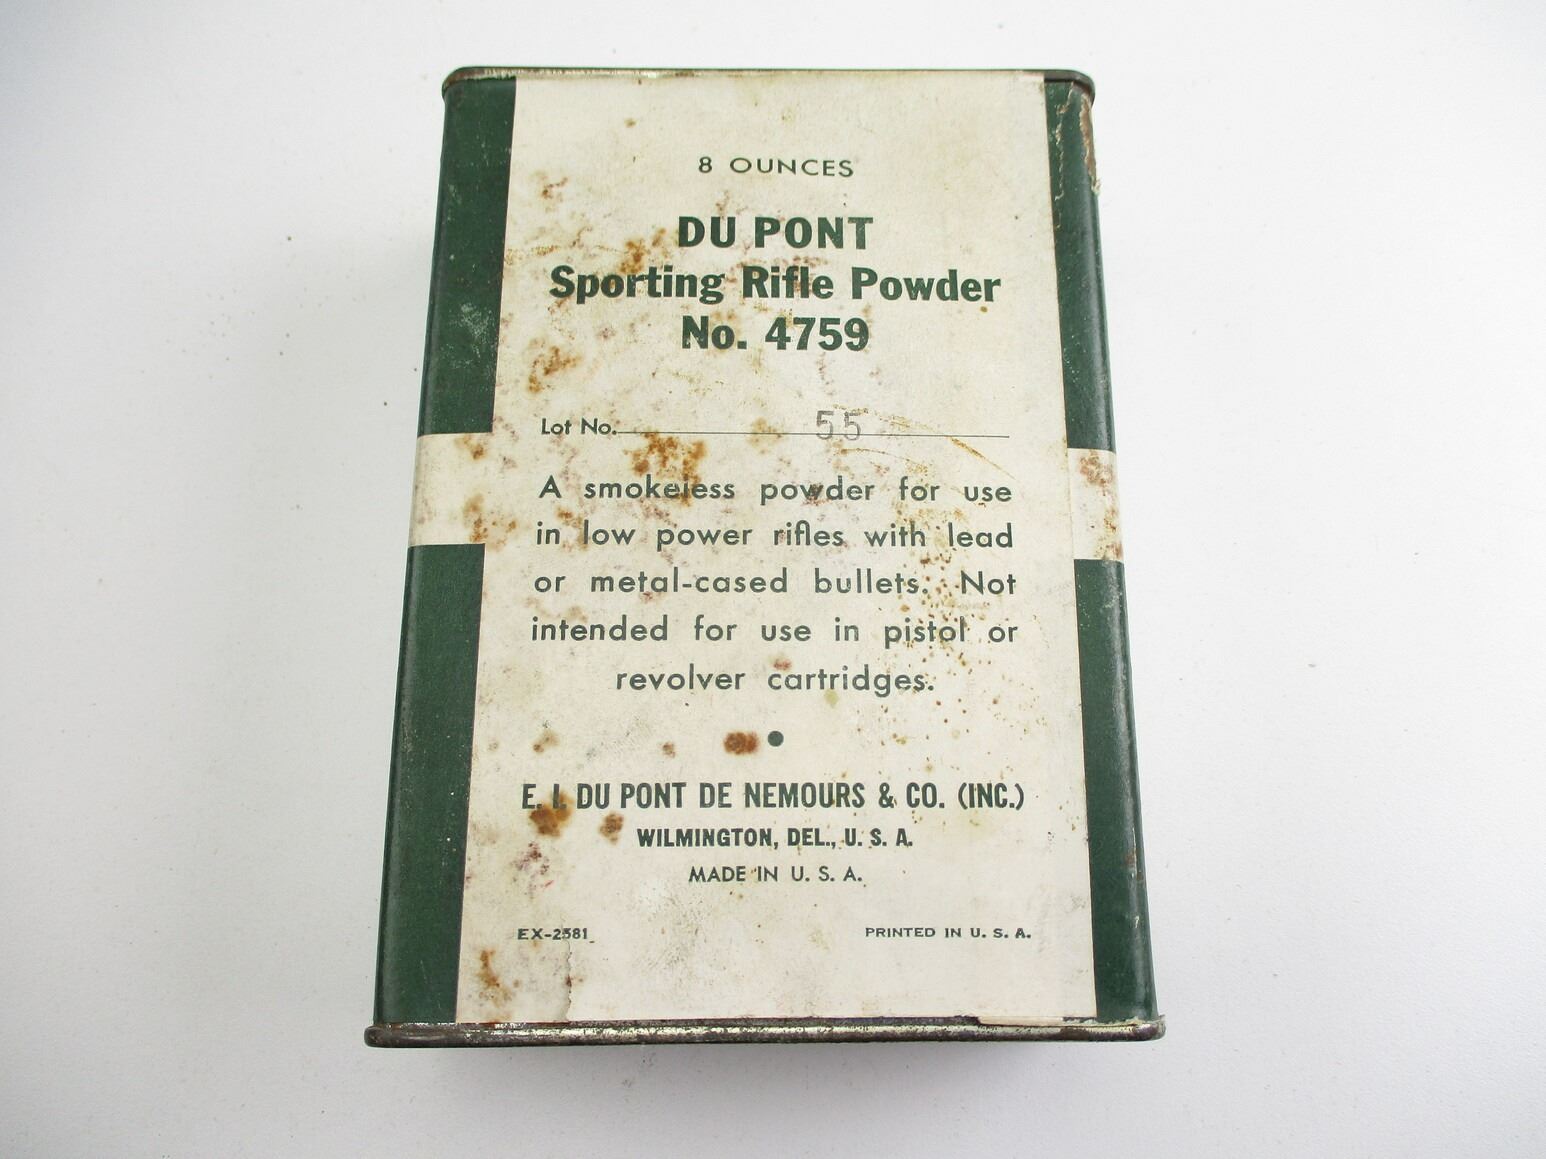 8 OUNCES
DU PONT
Sporting Rifle Powder
No. 4759
Lot No. 55
A smokeless powder for use
in low power rifles with lead
or metal-cased bullets. Not
intended for use in pistol or
revolver cartridges.
E. I. DU PONT DE NEMOURS & CO. (INC.)
WILMINGTON, DEL., U. S. A.
MADE IN U. S. A.
EX-2581
PRINTED IN U. S. A.